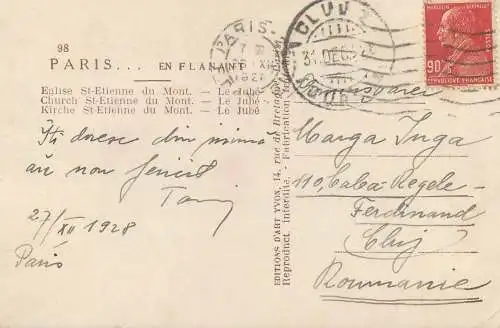 98
PARIS... EN FLANANT
Eglise St-Etienne du Mont. - Le Jubé
Church St-Etienne du Mont. - Le Jubé
Kirche St-Etienne du Mont. - Le Jubé
Iți doresc din inimă
un nou fericit
27/XII 1928
Paris
EDITIONS D'ART YVON, 14, rue de Bretagne
Reproduct. Interdite. - Fabrication
PARIS
CLUJ
31 DEC
90c
POSTES
REPUBLIQUE FRANÇAISE
Marga Inga
110, Calea Regele-
Ferdinand
Cluj
Roumanie